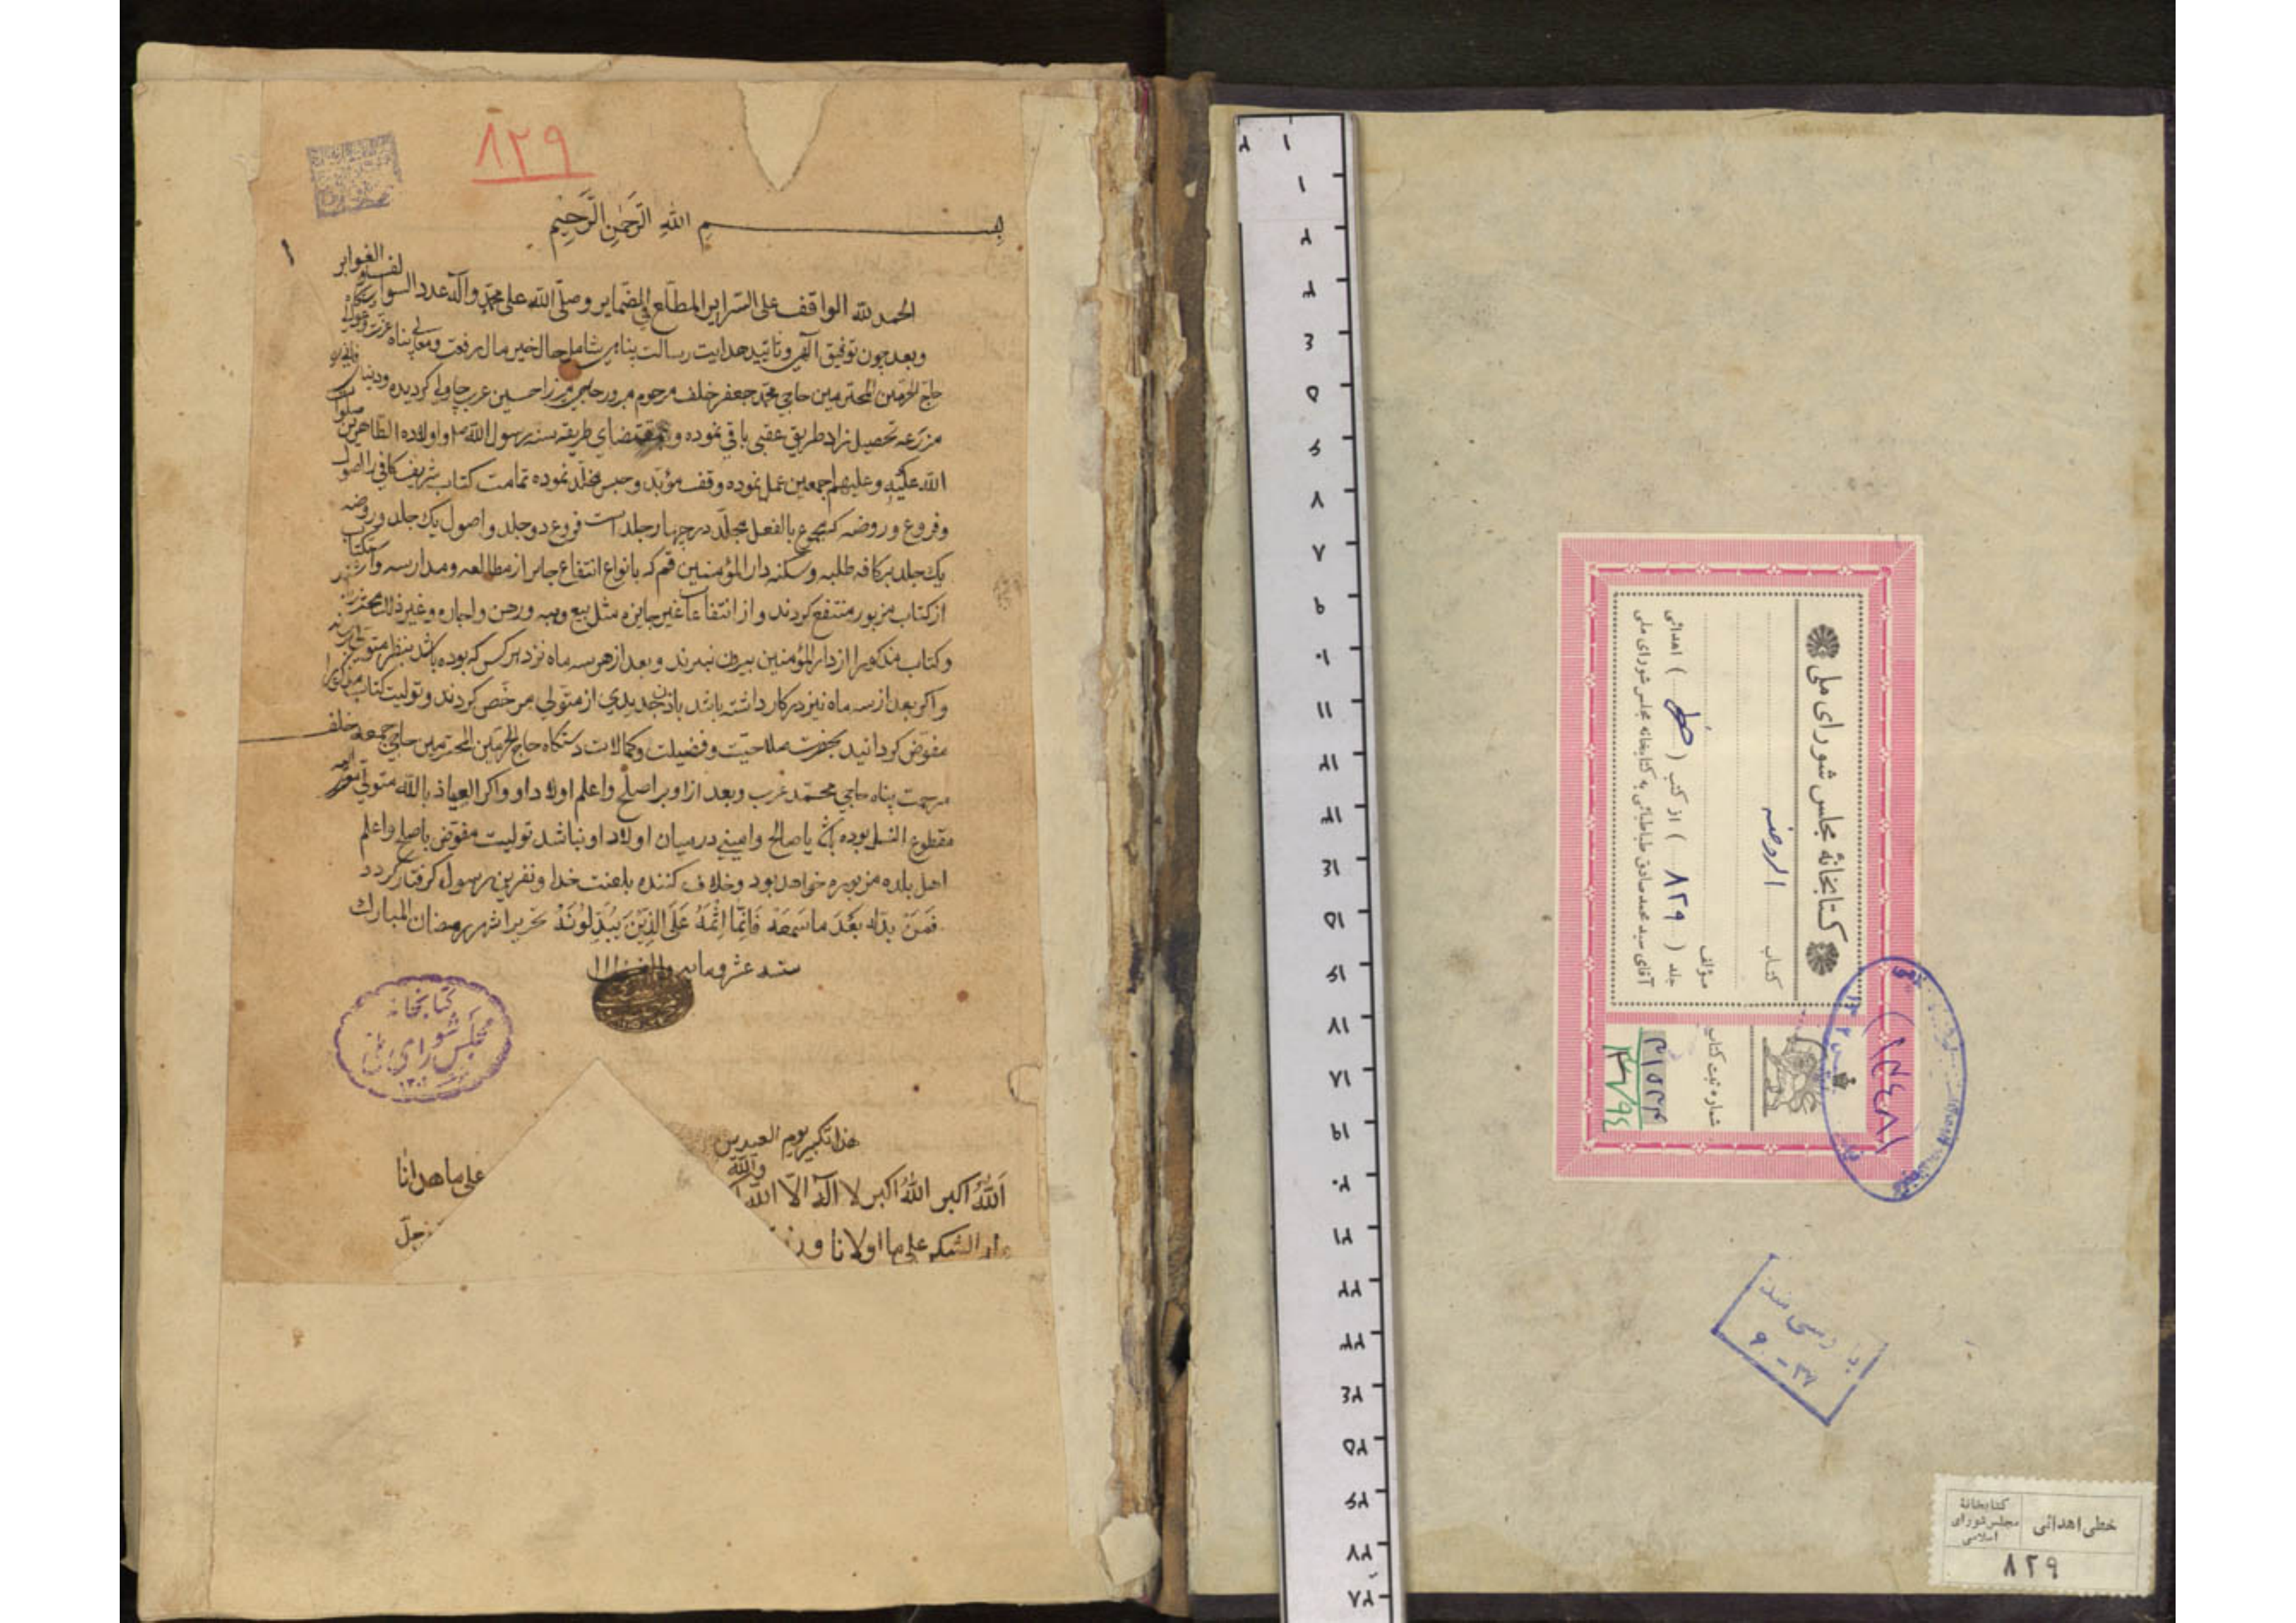 ۸۲۹
بسم الله الرحمن الرحيم
۱
الحمد لله الواقف على السراير المطلع في الضماير وصلى الله على محمد وآله عدد السوالف والغوابر
وبعد چون توفيق الهى وتاييد هدايت رسالت پناهى شامل حال خير مال رفعت ومعالى پناه عزت
حاج الحرمين المحترمين حاجى محمد جعفر خلف مرحوم مبرور حاجى ميرزا حسين عرب چاولى كرديده ودنيا
مزرعه تحصيل زاد طريق عقبى باقى نموده وبمقتضاى طريقه سنه رسول الله ص واولاده الطاهرين صلوات
الله عليه وعليهم اجمعين عمل نموده وقف مؤبد وحبس مخلد نموده تمامت كتاب شريف كافى را اصول
وفروع وروضه كه مجموع بالفعل مجلد در چهار جلد است فروع دو جلد واصول يك جلد وروضه
يك جلد بر كافه طلبه وسكنه دار المؤمنين قم كه بانواع انتفاع جايز از مطالعه ومدارسه واستكتاب
از كتاب مزبور منتفع كردند واز انتفاعات غير جايزه مثل بيع وهبه ورهن واجاره وغير ذلك محترز
وكتاب مذكور را از دار المؤمنين بيرون نبرند وبعد از هر سه ماه نزد هر كس كه بوده باشد بنظر متولى برسانند
واكر بعد از سه ماه نيز در كار داشته باشد باذن جديدى از متولى مرخص كردند وتوليت كتاب مذكور را
مفوض كردانيد بحضرت صلاحيت وفضيلت وكمالات دستكاه حاج الحرمين المحترمين حاجى جمعه خلف
مرحمت پناه حاجى محمد عرب وبعد از او بر اصلح واعلم اولاد او واكر العياذ بالله متولى
مقطوع النسل بوده باشد يا صالح وامينى در ميان اولاد او نباشد توليت مفوض باصلح واعلم
اهل بلده مزبوره خواهد بود وخلاف كننده بلعنت خدا ونفرين رسول كرفتار كردد
فَمَنْ بدله بَعْدَ ما سَمِعَهُ فَاِنَّما اِثْمُهُ عَلَى الَّذِيْنَ يُبَدِّلُونَهُ تحريرا شهر رمضان المبارك
سنه عشر ومايه والف ۱۱۱۰
كتابخانه
مجلس شوراى ملى
۱۳۰۲
هذا تكبير يوم العيدين
اَللهُ اكبر اللهُ اكبر لا اله الا الله والله
على ما هدانا
الشكر على ما اولانا
كتابخانهٔ مجلس شوراى ملى
كتاب
الروضه
مؤلف
جلد ( ۸۲۹ ) از كتب ( خطى ) اهدائى
آقاى سيد محمد صادق طباطبائى به كتابخانه مجلس شوراى ملى
شماره ثبت كتاب
۳۱۵۳۴
۱۸۴۸۱
بازرسى شد
۳۷ - ۹
خطى اهدائى
كتابخانهٔ
مجلس شوراى
اسلامى
۸۲۹